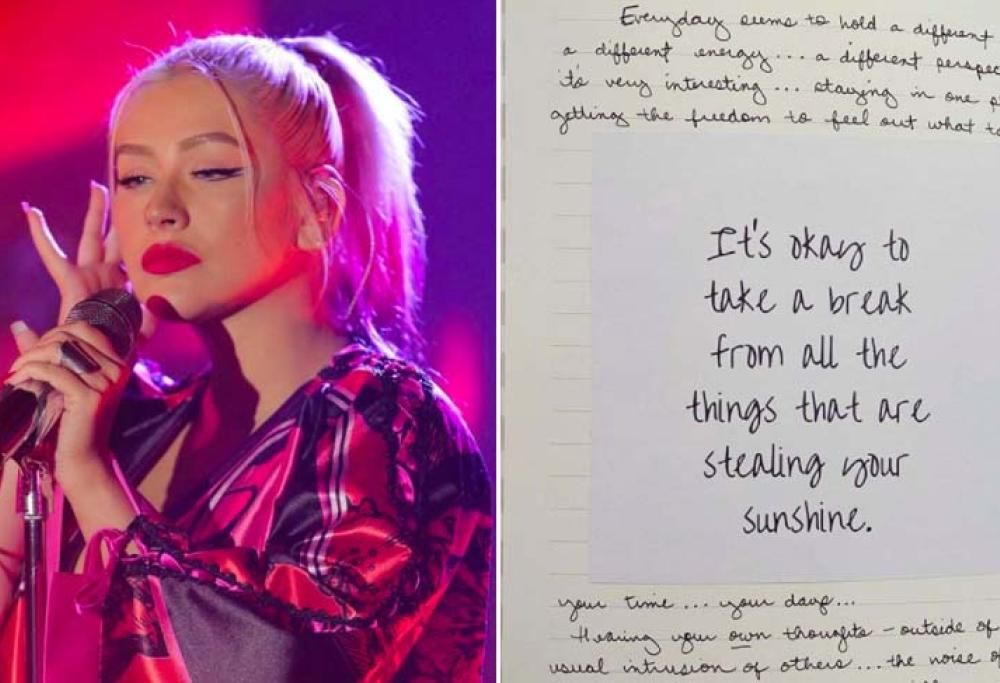 Everyday seems to hold a different
a different energy... a different perspec
it's very interesting... staying in one p
getting the freedom to feel out what to
It's okay to
take a break
from all the
things that are
stealing your
sunshine.
your time... your days...
Hearing your own thoughts - outside of
usual intrusion of others... the noise of